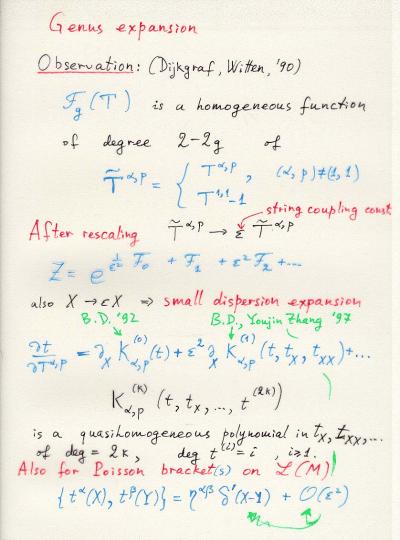 Genus expansion
Observation: (Dijkgraf, Witten, '90)
F_g(T) is a homogeneous function
of degree 2-2g of
T̃^{α,p} = { T^{α,p}, (α,p)≠(1,1)
T^{1,1}-1
string coupling const
After rescaling T̃^{α,p} → ε T̃^{α,p}
Z = e^{1/ε² F_0 + F_1 + ε² F_2 + ...
also X → εX ⇒ small dispersion expansion
B.D. '92 B.D., Youjin Zhang '97
∂t/∂T^{α,p} = ∂_X K^{(0)}_{α,p}(t) + ε² ∂_X K^{(1)}_{α,p}(t, t_X, t_{XX}) + ...
K^{(k)}_{α,p}(t, t_X, ..., t^{(2k)})
is a quasihomogeneous polynomial in t_X, t_{XX}, ...
of deg = 2k, deg t^{(i)} = i, i≥1.
Also for Poisson bracket(s) on L(M)
{t^α(X), t^β(Y)} = η^{αβ} δ'(X-Y) + O(ε²)